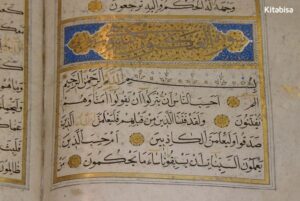 Kitabisa
وجهه له الحكم واليه ترجعون
بسم الله الرحمن الرحيم
الم احسب الناس ان يتركوا ان يقولوا امنا وهم لا
يفتنون ولقد فتنا الذين من قبلهم فليعلمن الله الذين
صدقوا وليعلمن الكاذبين ام حسب الذين
يعملون السيئات ان يسبقونا ساء ما يحكمون من
ظالمون